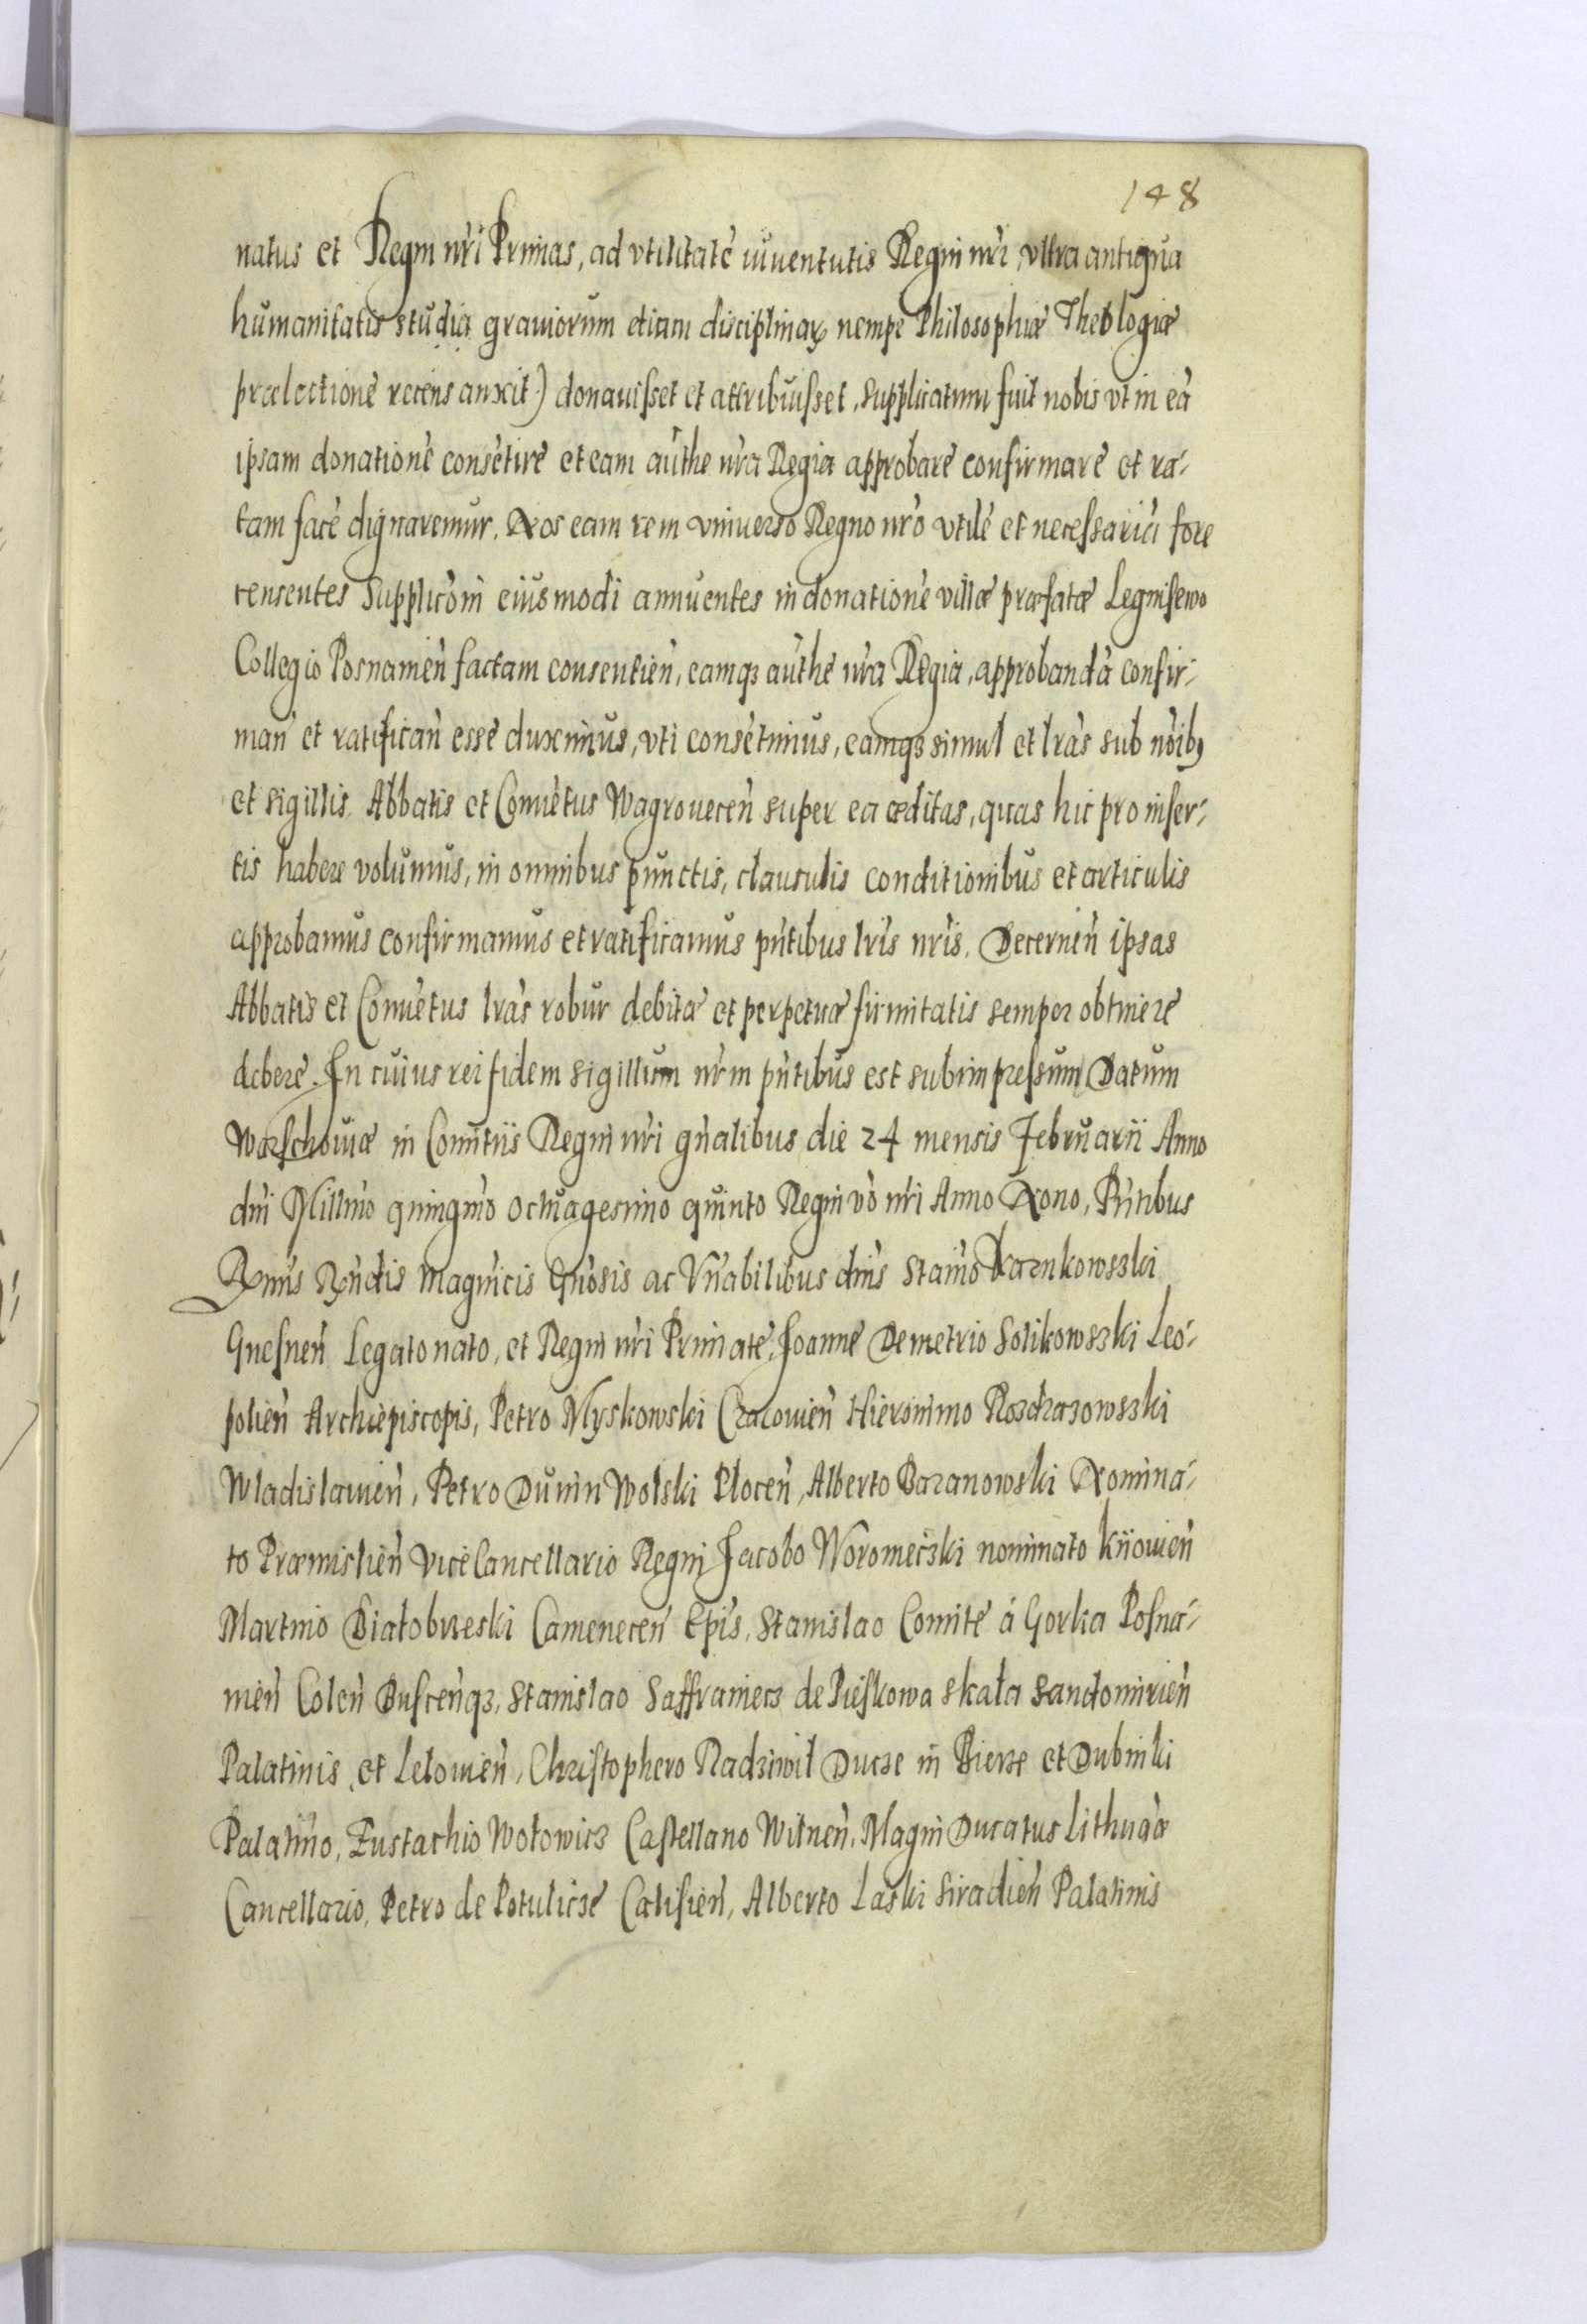 148
natus et Regni nr̃i Primas, ad vtilitatẽ iuuentutis Regni nr̃i vltra antiqua
humanitatis studia grauiorum etiam disciplinaꝝ nempe Philosophiæ Theologiæ
prælectionẽ recens auxit) donauisset et attribuisset, supplicatum fuit nobis vt in eã
ipsam donationẽ consẽtire et eam auth̃e nr̃a Regia approbare confirmare et ra-
tam facẽ dignaremur. Nos eam rem vniuerso Regno nr̃o vtilẽ et necessariã fore
censentes Supplicõni eiusmodi annuentes in donationẽ villæ præfatæ Legnisewo
Collegio Posnameñ factam consentieñ, eamqꝫ auth̃e nr̃a Regia, approbandã confir-
mañ et ratificañ esse duximus, vti consẽtimus, eamqꝫ simul et lr̃as sub nõibꝫ
et sigillis Abbatis et Conuẽtus Wagroueceñ super ea æditas, quas hic pro inser-
tis habere volumus, in omnibus punctis, clausulis conditionibus et articulis
approbamus confirmamus et ratificamus pñtibus lr̃is nr̃is. Decerneñ ipsas
Abbatis et Conuẽtus lr̃as robur debitæ et perpetuæ firmitatis semper obtinere
debere. In cuius rei fidem sigillum nr̃m pñtibus est subimpressum Datum
Warschouiæ in Comitiis Regni nr̃i gñalibus die 24 mensis Februarii Anno
dñi Millm̃o quingm̃o octuagesimo quinto Regni võ nr̃i Anno Nono, Pñtibus
Rm̃is Rñdis Magnicis Gñosis ac Vñabilibus dñis Stanĩo Karnkowsski
Gnesneñ Legato nato, et Regni nr̃i Primate, Joanne Demetrio Solikowsski Leo-
polieñ Archiepiscopis, Petro Myskowski Cracouieñ Hieronimo Rozdrazowsski
Wladislauieñ, Petro Dunin Wolski Ploceñ, Alberto Baranowski Nomina-
to Præmislieñ ViceCancellario Regni Jacobo Woronieczki nominato kiiouieñ
Martino Białobrzeski Cameneceñ Ep̃is, Stanislao Comite á Gorka Posna-
mieñ Coleñ Busceñqꝫ, Stanislao Saffraniecz de Pieskowa skała Sandomirieñ
Palatinis et Lelouieñ, Christophero Radziwił Ducze in Bierze et Dubinki
Palatino, Eustachio Wołowicz Castellano Wilneñ, Magni Ducatus Lithuãæ
Cancellario, Petro de Potulicze Calisieñ, Alberto Laski Siradieñ Palatinis